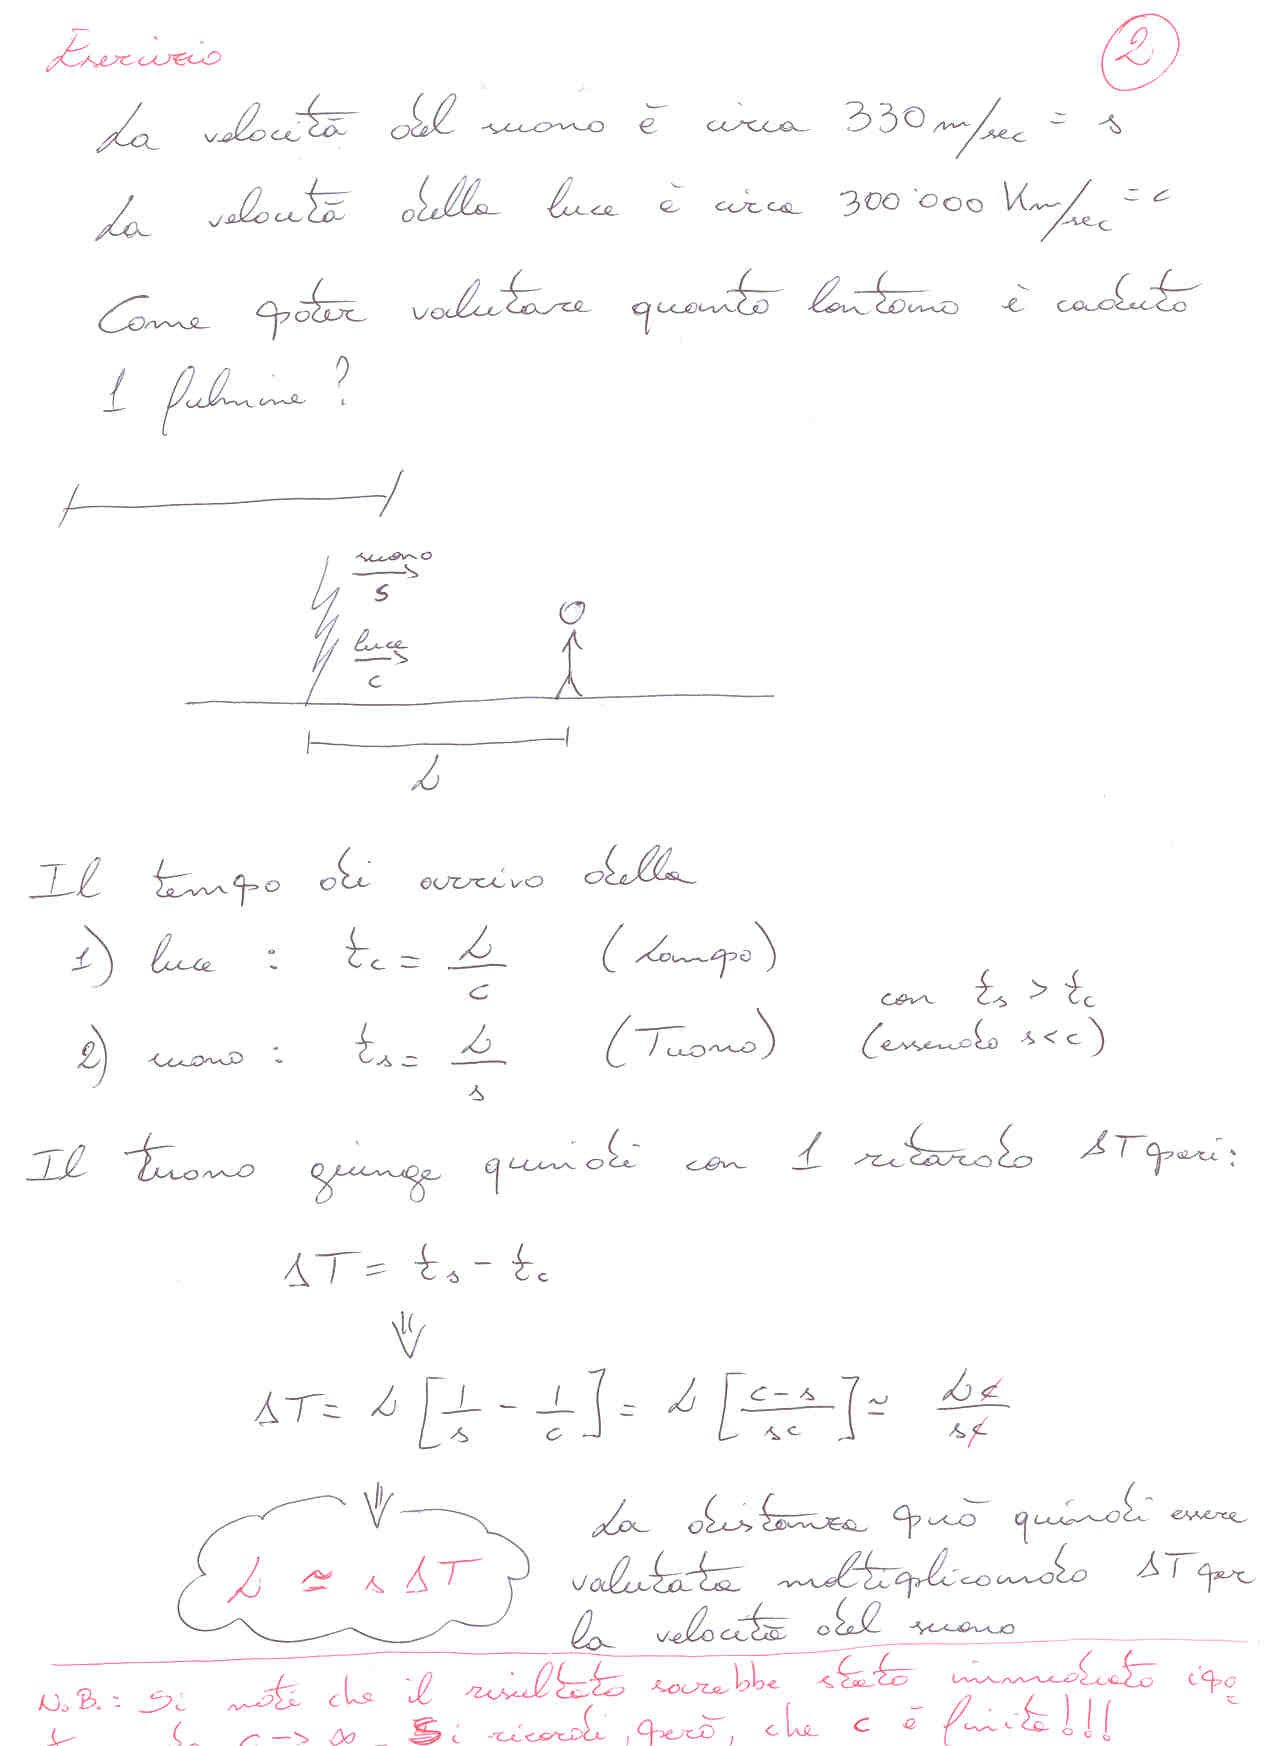 Esercizio
2
La velocità del suono è circa 330 m/sec = s
La velocità della luce è circa 300'000 Km/sec = c
Come poter valutare quanto lontano è caduto
1 fulmine?
suono
s
luce
c
L
Il tempo di arrivo della
1) luce : t_c = L/c (Lampo)
con t_s > t_c
2) suono : t_s = L/s (Tuono) (essendo s < c)
Il tuono giunge quindi con 1 ritardo ΔT pari:
ΔT = t_s - t_c
⇓
ΔT = L [1/s - 1/c] = L [(c-s)/(sc)] ≃ Lc/sc
⇓
L ≃ s ΔT
La distanza può quindi essere
valutata moltiplicando ΔT per
la velocità del suono
N.B.: Si noti che il risultato sarebbe stato immediato ipo
c → ∞. Si ricordi, però, che c è finita!!!